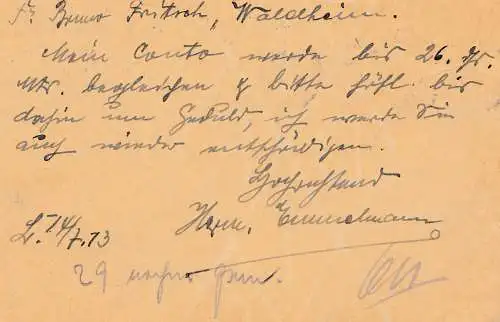 Fr. Bruno Fritsch, Waldheim.
Mein Conto werde bis 26. ds.
Mts. begleichen & bitte höfl. bis
dahin um Geduld, ich werde Sie
auch wieder entschädigen.
Hochachtend
Herm. Emmelmann
L. 14/7.13
29